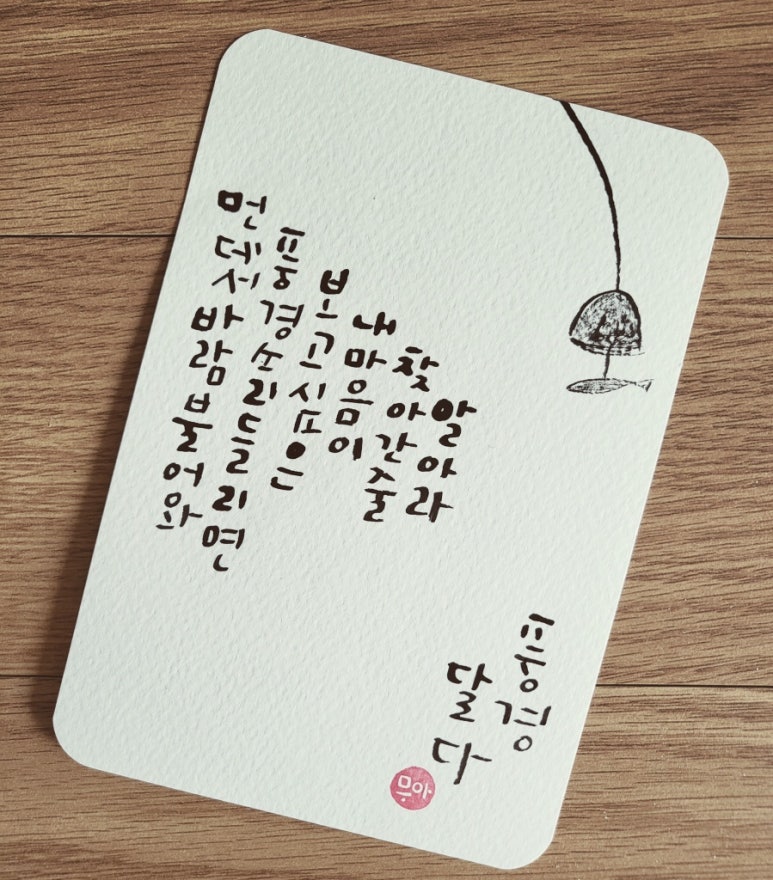 먼데서 바람 불어와
풍경 소리 들리면
보고 싶은
내 마음이
찾아간 줄
알아라
풍경
달다